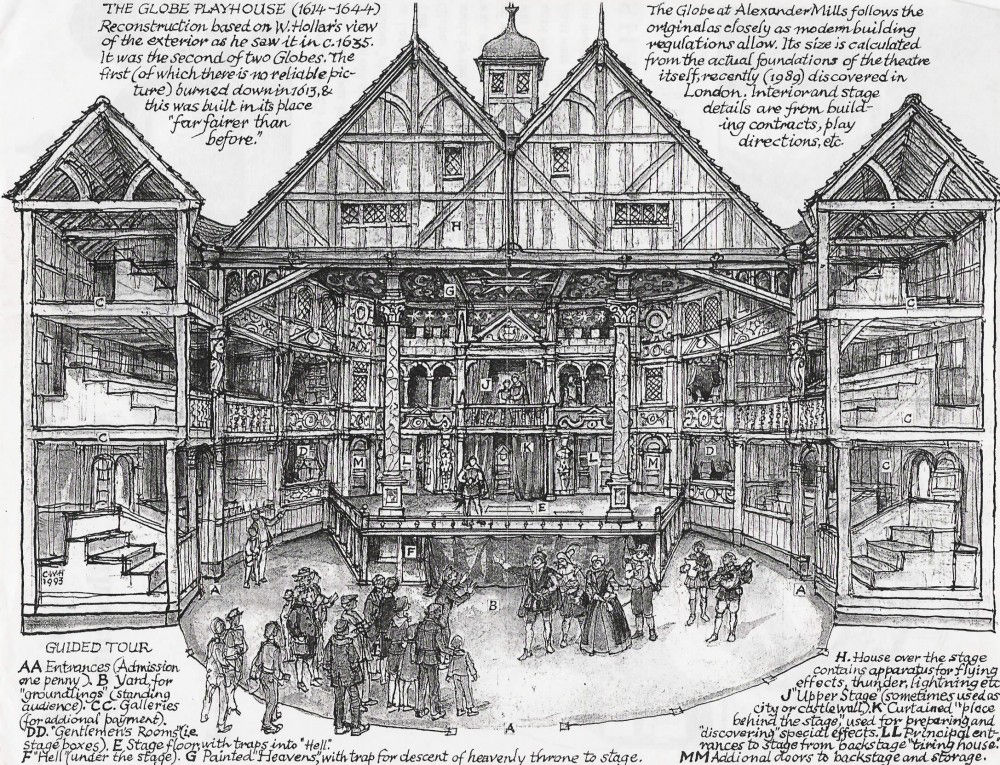 THE GLOBE PLAYHOUSE (1614-1644)
Reconstruction based on W. Hollar's view
of the exterior as he saw it in c.1635.
It was the second of two Globes. The
first (of which there is no reliable pic-
ture) burned down in 1613, &
this was built in its place
"far fairer than
before."
The Globe at Alexander Mills follows the
original as closely as modern building
regulations allow. Its size is calculated
from the actual foundations of the theatre
itself, recently (1989) discovered in
London. Interior and stage
details are from build-
ing contracts, play
directions, etc.
H
G
C
C
J
C
C
C
D
M
L
K
L
M
D
E
F
B
A
A
A
CWH
1993
GUIDED TOUR
AA Entrances (Admission
one penny). B Yard, for
"groundlings" (standing
audience). CC. Galleries
(for addional payment).
DD. "Gentlemen's Rooms" (i.e.
stage boxes). E Stage floor with traps into "Hell".
F "Hell" (under the stage). G Painted "Heavens", with trap for descent of heavenly throne to stage.
H. House over the stage
contains apparatus for flying
effects, thunder, lightning etc
J "Upper Stage" (sometimes used as
city or castle wall). K Curtained "place
behind the stage," used for preparing and
"discovering" special effects. LL Principal ent-
rances to stage from backstage "tiring house."
MM Addional doors to backstage and storage.